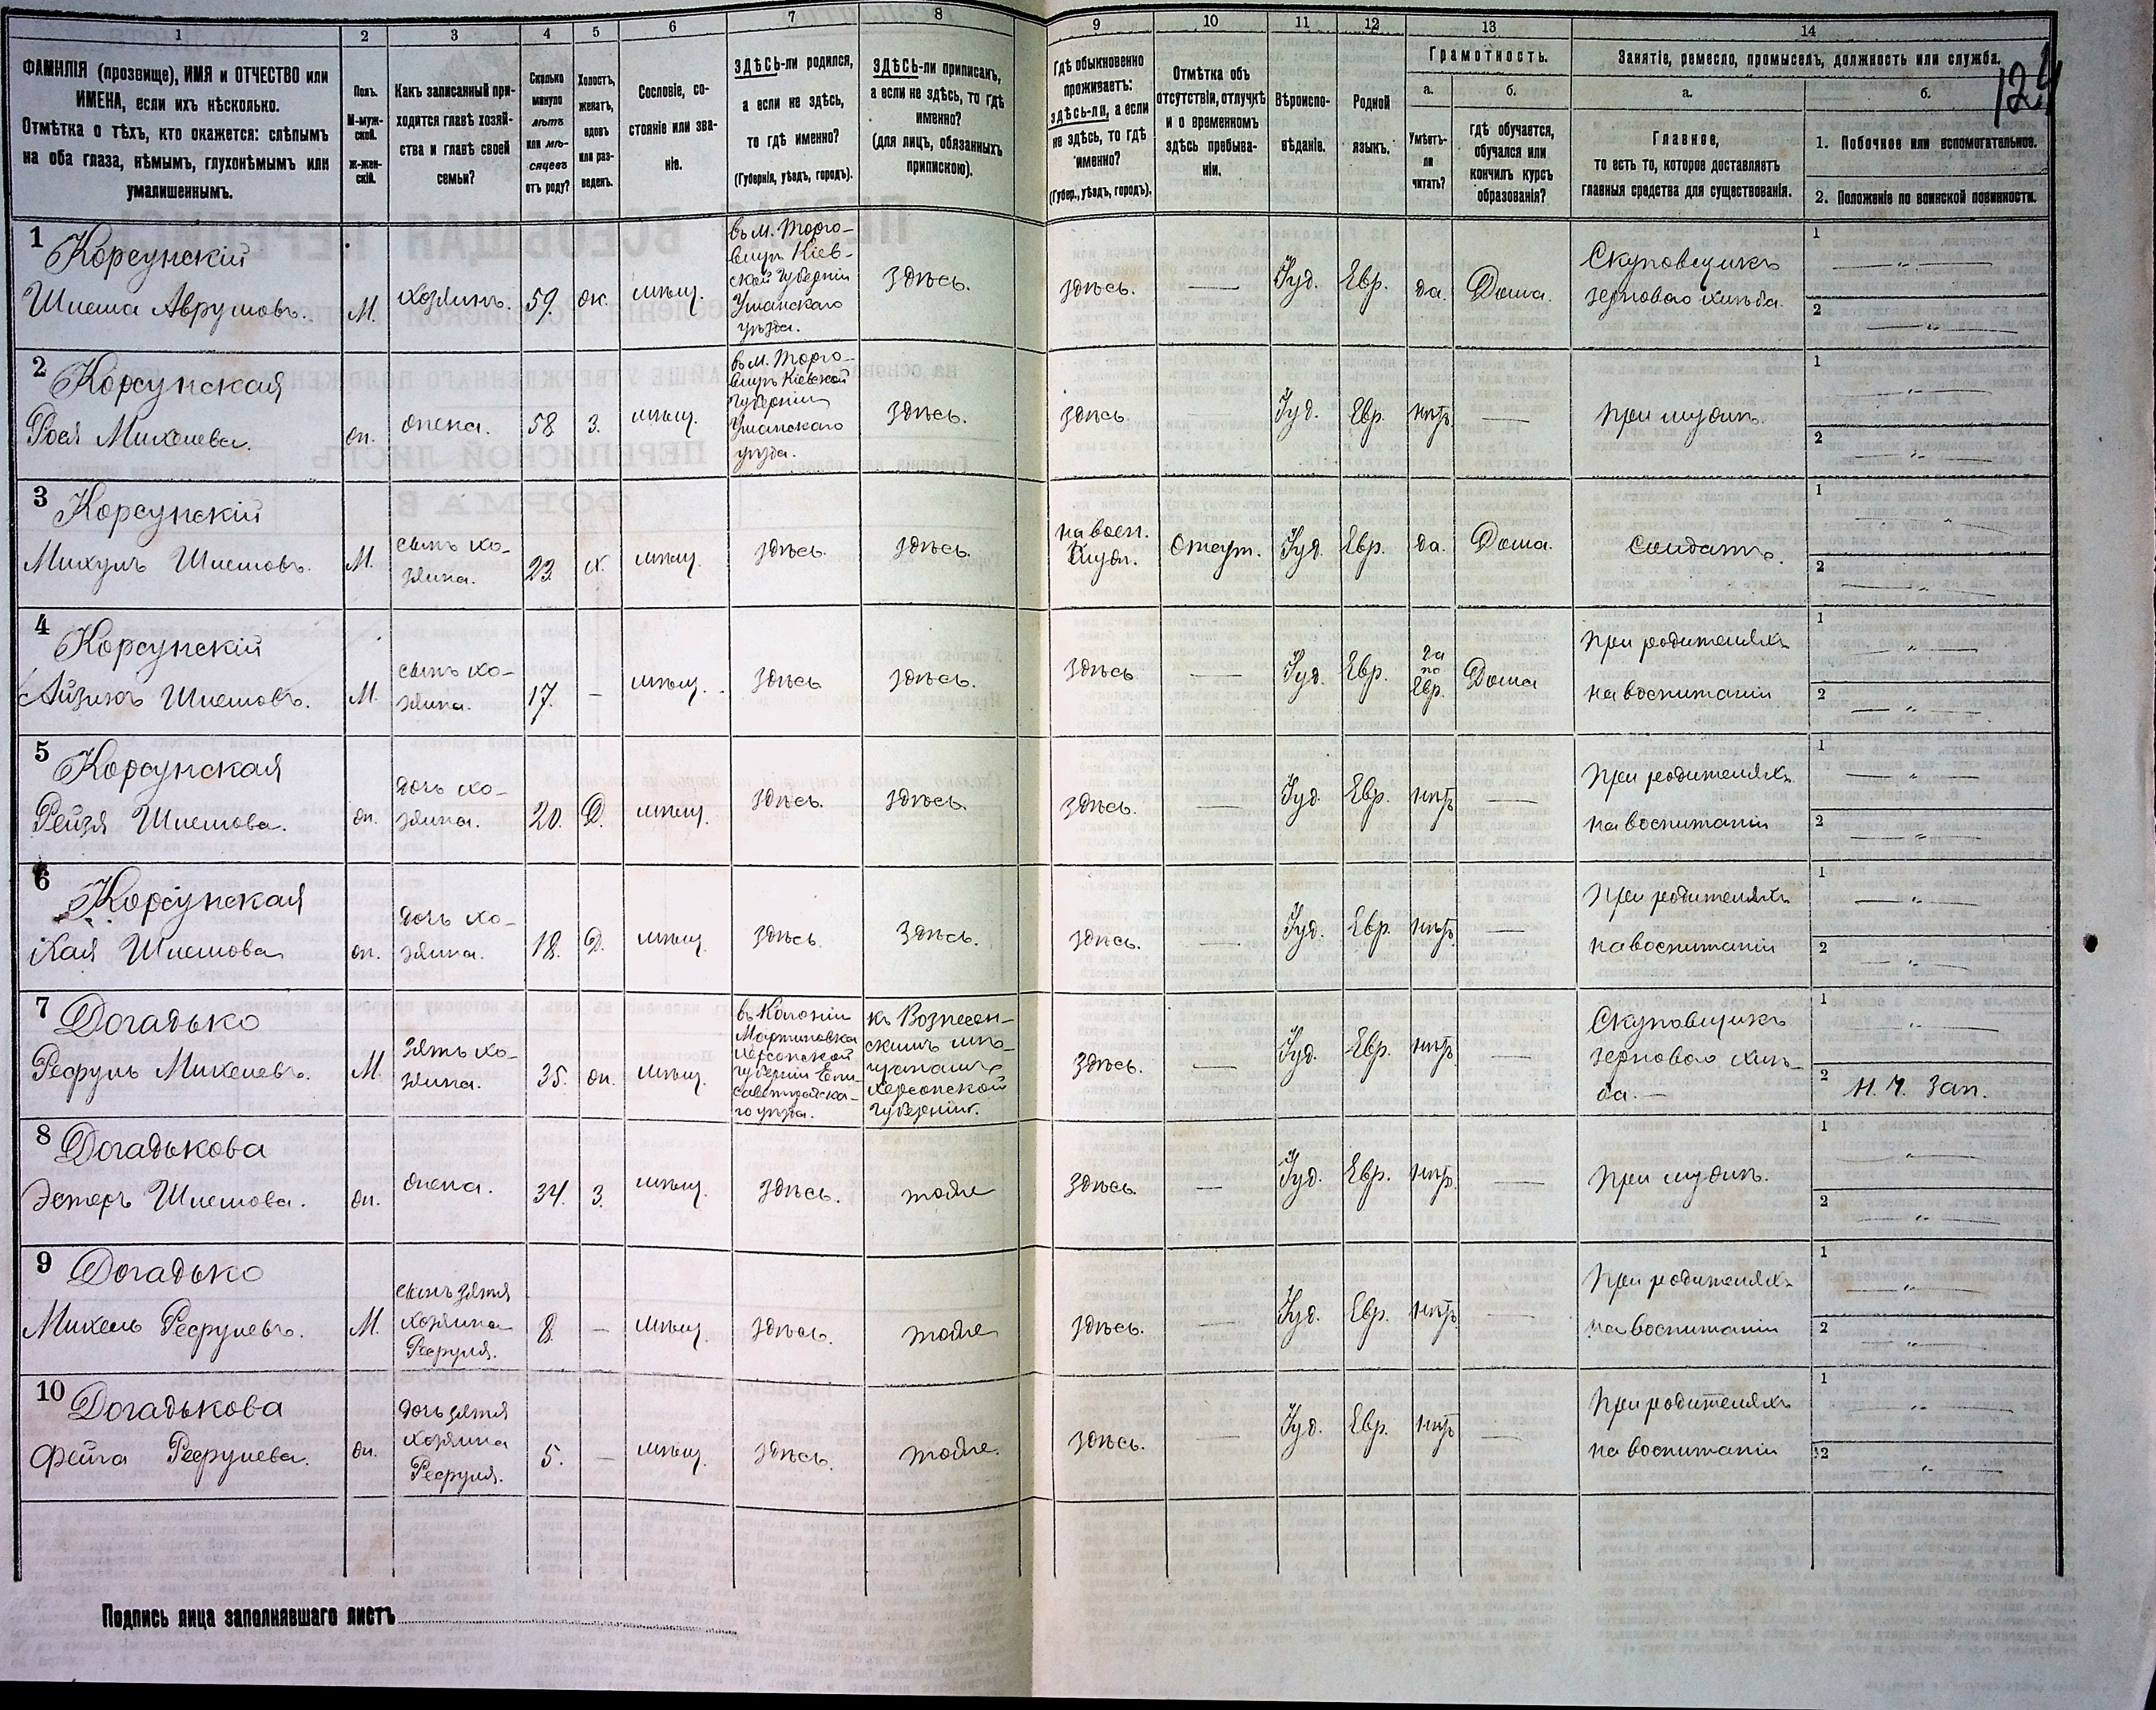 1 2 3 4 5 6 7 8 9 10 11 12 13 14
124
ФАМИЛІЯ (прозвище), ИМЯ и ОТЧЕСТВО или
ИМЕНА, если ихъ нѣсколько.
Отмѣтка о тѣхъ, кто окажется: слѣпымъ
на оба глаза, нѣмымъ, глухонѣмымъ или
умалишеннымъ.
Полъ.
М-муж-
ской.
Ж-жен-
скій.
Какъ записанный при-
ходится главѣ хозяй-
ства и главѣ своей
семьи?
Сколько
минуло
лѣтъ
или мѣ-
сяцевъ
отъ роду?
Холостъ,
женатъ,
вдовъ
или раз-
веденъ.
Сословіе, со-
стояніе или зва-
ніе.
ЗДѢСЬ-ли родился,
а если не здѣсь,
то гдѣ именно?
(Губернія, уѣздъ, городъ).
ЗДѢСЬ-ли приписанъ,
а если не здѣсь, то гдѣ
именно?
(для лицъ, обязанныхъ
припискою).
Гдѣ обыкновенно
проживаетъ:
здѣсь-ли, а если
не здѣсь, то гдѣ
именно?
(Губер., уѣздъ, городъ).
Отмѣтка объ
отсутствіи, отлучкѣ
и о временномъ
здѣсь пребыва-
ніи.
Вѣроиспо-
вѣданіе.
Родной
языкъ.
Грамотность.
а.
Умѣетъ-
ли
читать?
б.
гдѣ обучается,
обучался или
кончилъ курсъ
образованія?
Занятіе, ремесло, промыселъ, должность или служба.
а.
Главное,
то есть то, которое доставляетъ
главныя средства для существованія.
б.
1. Побочное или вспомогательное.
2. Положеніе по воинской повинности.
1
Корсунскій
Шлема Аврумовъ.
М.
хозяинъ.
59.
ж.
мѣщ.
въ м. Торго-
вицѣ Кіев-
ской губерніи
Уманскаго
уѣзда.
здѣсь.
здѣсь.
—
Іуд.
Евр.
да.
Дома.
Скуповщикъ
зернового хлѣба.
1 — „ —
2 — „ —
2
Корсунская
Рося Михелева.
ж.
жена.
58.
З.
мѣщ.
въ м. Торго-
вицѣ Кіевской
губерніи
Уманскаго
уѣзда.
здѣсь.
здѣсь
—
Іуд.
Евр.
нѣтъ
—
при мужѣ.
1 — „ —
2 — „ —
3
Корсунскій
Михулъ Шлемовъ.
М.
сынъ хо-
зяина.
23.
х.
мѣщ.
здѣсь.
здѣсь.
на воен.
служ.
Отсут.
Іуд.
Евр.
да.
Дома.
солдатъ.
1 — „ —
2 — „ —
4
Корсунскій
Айзикъ Шлемовъ.
М.
сынъ хо-
зяина.
17.
—
мѣщ.
здѣсь
здѣсь.
здѣсь
—
Іуд.
Евр.
да
по
Евр.
Дома
При родителяхъ
на воспитаніи
1 — „ —
2 — „ —
5
Корсунская
Рейзя Шлемова.
ж.
дочь хо-
зяина.
20.
Д.
мѣщ.
здѣсь.
здѣсь.
здѣсь.
—
Іуд.
Евр.
нѣтъ
—
При родителяхъ
на воспитаніи
1 — „ —
2 — „ —
6
Корсунская
Хая Шлемова
ж.
дочь хо-
зяина.
18.
Д.
мѣщ.
здѣсь
здѣсь.
здѣсь.
—
Іуд.
Евр.
нѣтъ
—
При родителяхъ
на воспитаніи
1 — „ —
2 — „ —
7
Догадько
Рефулъ Михелевъ.
М.
зять хо-
зяина.
35.
ж.
мѣщ.
въ Колоніи
Мартиновка
Херсонской
губерніи Ели-
саветградска-
го уѣзда.
къ Вознесен-
скимъ мѣ-
щанамъ
Херсонской
губерніи.
здѣсь.
—
Іуд.
Евр.
нѣтъ
—
Скуповщикъ
зернового хлѣ-
ба. —
1 — „ —
2 Н. Ч. Зап.
8
Догадькова
Эстеръ Шлемова.
ж.
жена.
34.
З.
мѣщ.
здѣсь.
тоже
здѣсь.
—
Іуд.
Евр.
нѣтъ
—
При мужѣ.
1 — „ —
2 — „ —
9
Догадько
Михель Рефулевъ.
М.
сынъ зятя
хозяина
Рефуля.
8.
—
мѣщ.
здѣсь.
тоже
здѣсь.
—
Іуд.
Евр.
нѣтъ
—
При родителяхъ
на воспитаніи
1 — „ —
2 — „ —
10
Догадькова
Фейга Рефулева.
ж.
дочь зятя
хозяина
Рефуля.
5.
—
мѣщ.
здѣсь.
тоже.
здѣсь.
—
Іуд.
Евр.
нѣтъ
—
При родителяхъ
на воспитаніи
1 — „ —
2 — „ —
Подпись лица заполнявшаго листъ